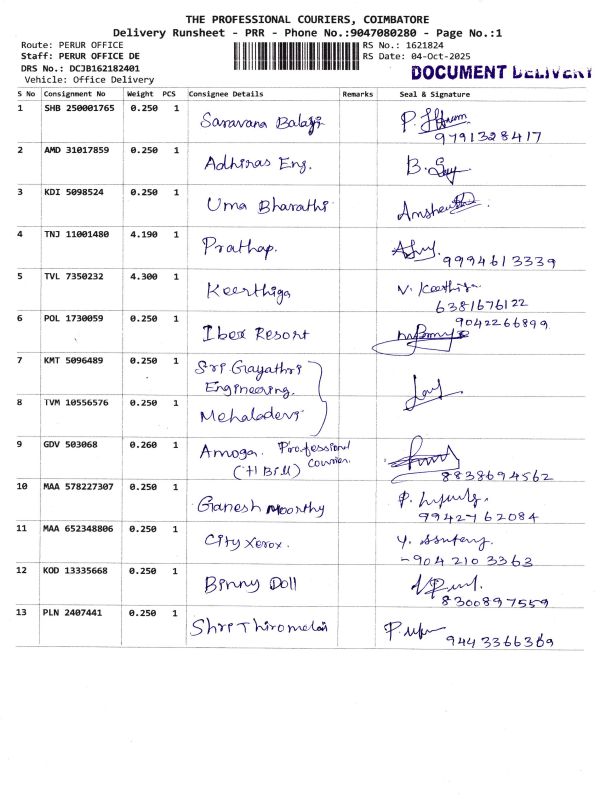 THE PROFESSIONAL COURIERS, COIMBATORE
Delivery Runsheet - PRR - Phone No.:9047080280 - Page No.:1
Route: PERUR OFFICE RS No.: 1621824
Staff: PERUR OFFICE DE RS Date: 04-Oct-2025
DRS No.: DCJB162182401 DOCUMENT DELIVERY
Vehicle: Office Delivery
S No Consignment No Weight PCS Consignee Details Remarks Seal & Signature
1 SHB 250001765 0.250 1 Saravana Balaji
9791328417
2 AMD 31017859 0.250 1 Adhiras Eng.
3 KDI 5098524 0.250 1 Uma Bharathi
4 TNJ 11001480 4.190 1 Prathap.
9994613339
5 TVL 7350232 4.300 1 Keerthiga V. Keerthiga
6381676122
6 POL 1730059 0.250 1 Ibex Resort 9042266899
7 KMT 5096489 0.250 1 Sri Gayathri
Engineering.
8 TVM 10556576 0.250 1 Mehaladevi
9 GDV 503068 0.260 1 Amoga. Professional
(H Bill) Courier.
8838694562
10 MAA 578227307 0.250 1 Ganesh Moorthy
9942762084
11 MAA 652348806 0.250 1 City Xerox.
9042103363
12 KOD 13335668 0.250 1 Binny Doll
8300897559
13 PLN 2407441 0.250 1 Shri Thiromalai
9443366369